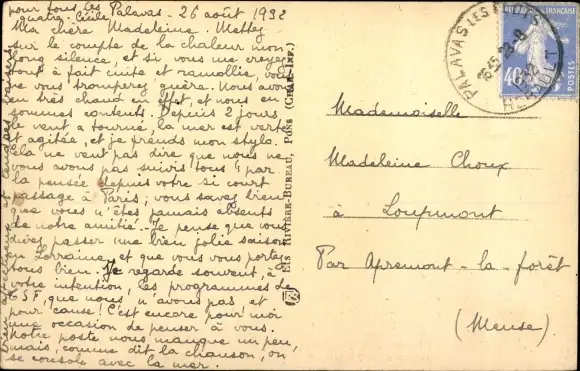 pour tous les
quatre. Cécile
Palavas. 26 août 1932
Ma chère Madeleine. Mettez
sur le compte de la chaleur mon
long silence, et si vous me croyez
tout à fait cuite et ramollie, vous
ne vous tromperez guère. Nous avons
eu très chaud en effet, et nous en
sommes contents. Depuis 2 jours,
le vent a tourné, la mer est verte
et agitée, et je prends mon stylo.
Cela ne veut pas dire que nous ne
vous avons pas suivis tous par
la pensée depuis votre si court
passage à Paris; vous savez bien
que vous n'êtes jamais absents
de notre amitié. Je pense que vous
devez passer une bien jolie saison
en Lorraine, et que vous vous portez
tous bien. Je regarde souvent, à
votre intention, les programmes de
TSF, que nous n'avons pas, et
pour cause! C'est encore pour moi
une occasion de penser à vous.
Notre poste nous manque un peu,
mais, comme dit la chanson, on
se console avec la mer.
Ets RIVIÈRE-BUREAU, PONS (CHAR.-INF.)
PALAVAS LES FLOTS
HERAULT
REPUBLIQUE FRANÇAISE
40c
POSTES
Mademoiselle
Madeleine Choux
à Loupmont
Par Apremont-la-forêt
(Meuse)